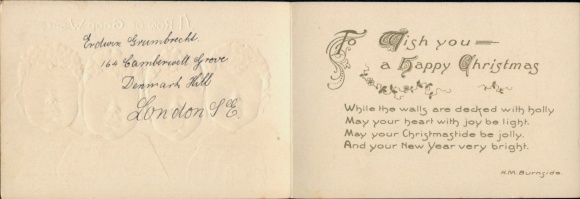 Erdwin Grumbrecht
164 Camberwell Grove
Denmark Hill
London S E.
To Wish you —
a happy Christmas
While the walls are decked with holly
May your heart with joy be light.
May your Christmastide be jolly.
And your New Year very bright.
H.M. Burnside.